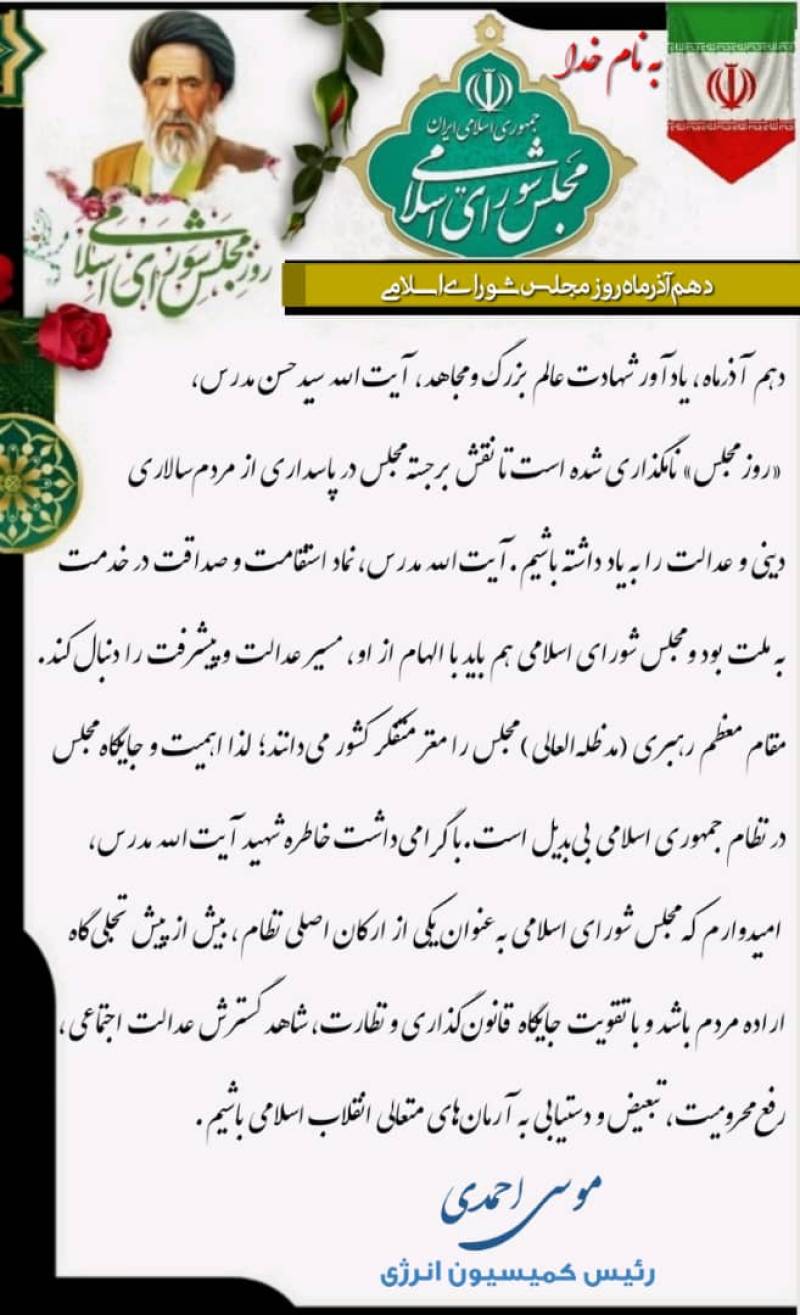 به نام خدا
جمهوری اسلامی ایران
مجلس شورای اسلامی
روز مجلس شورای اسلامی
دهم آذرماه روز مجلس شورای اسلامی
دهم آذرماه، یادآور شهادت عالم بزرگ و مجاهد، آیت‌الله سید حسن مدرس،
«روز مجلس» نامگذاری شده است تا نقش برجسته مجلس در پاسداری از مردم‌سالاری
دینی و عدالت را به یاد داشته باشیم. آیت‌الله مدرس، نماد استقامت و صداقت در خدمت
به ملت بود و مجلس شورای اسلامی هم باید با الهام از او، مسیر عدالت و پیشرفت را دنبال کند.
مقام معظم رهبری (مدظله‌العالی) مجلس را مغز متفکر کشور می‌دانند؛ لذا اهمیت و جایگاه مجلس
در نظام جمهوری اسلامی بی‌بدیل است. با گرامی‌داشت خاطره شهید آیت‌الله مدرس،
امیدوارم که مجلس شورای اسلامی به عنوان یکی از ارکان اصلی نظام، بیش از پیش تجلی‌گاه
اراده مردم باشد و با تقویت جایگاه قانون‌گذاری و نظارت، شاهد گسترش عدالت اجتماعی،
رفع محرومیت، تبعیض و دستیابی به آرمان‌های متعالی انقلاب اسلامی باشیم.
موسی احمدی
رئیس کمیسیون انرژی